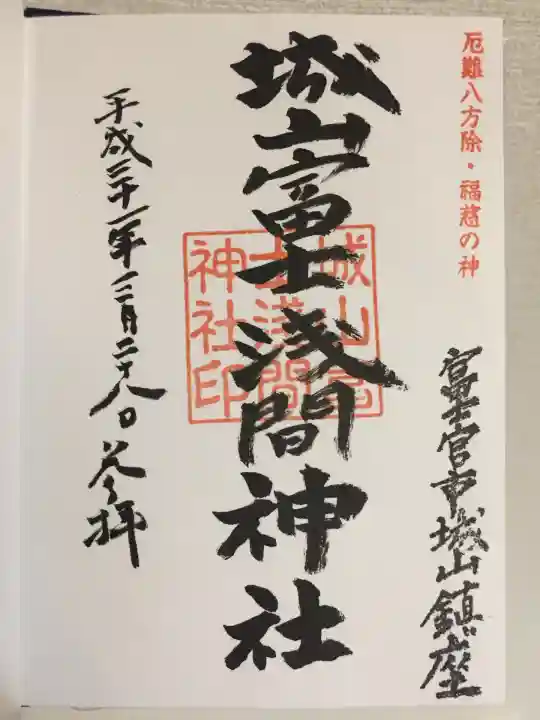 厄難八方除・福慈の神
富士宮市城山鎮座
城山富士淺間神社
城山富
士浅間
神社印
平成三十一年三月二十八日参拝